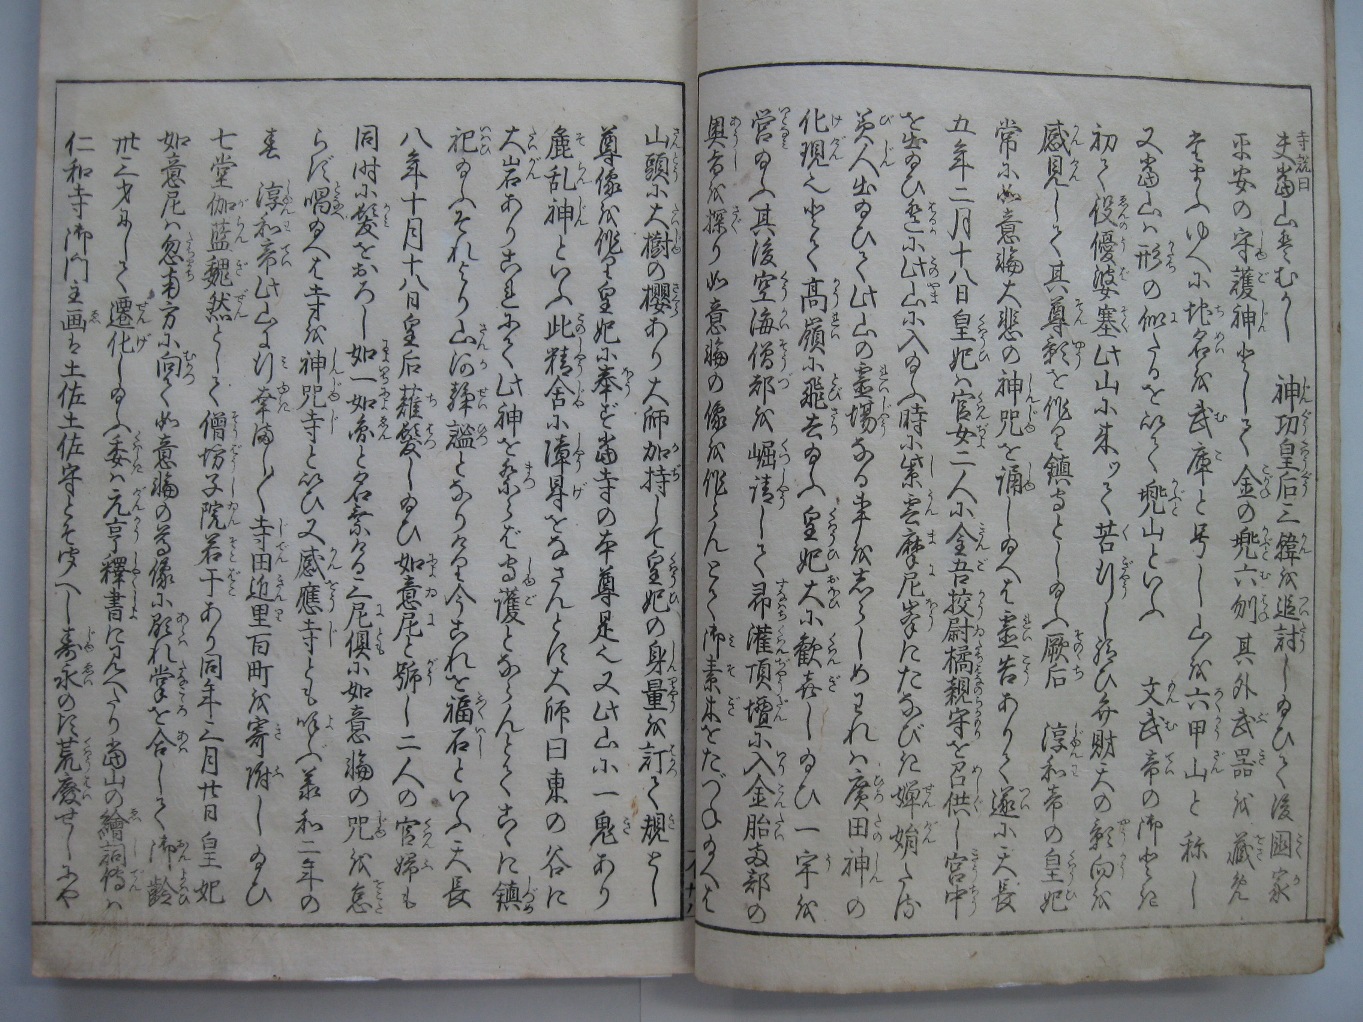 寺説曰
夫當山はむかし　神功皇后三韓を追討し給ひて後國家
平安の守護神として金の兜六刎其外武器を藏め
給ふゆへに地名を武庫と号し山を六甲山と称し
又當山は形の似たるを以て兜山といふ　文武帝の御とき
初て役優婆塞此山に来ッて苦行し給ひ弁財天の影向を
感見して其尊影を作り鎮守とし給ふ厥后　淳和帝の皇妃
常に如意輪大悲の神咒を誦し給へは霊告ありて遂に天長
五年二月十八日皇妃は官女二人に金吾挍尉橘親守を召供し宮中
を出給ひ此山に入給ふ時に紫雲摩尼峯にたなびき嬋娟たる
美人出給ひて此山の霊場なる事をしらしめわれは廣田神の
化現也とて高嶺に飛去給ふ皇妃大に歓喜し給ひ一宇を
営給ふ其後空海僧都を崛請して帰灌頂壇に入金胎両部の
奥旨を探り如意輪の像を作らんとて御素木をたづね給へは
山頭に大樹の櫻あり大師加持して皇妃の身量を訂て規とし
尊像を作り皇妃に奉ず當寺の本尊是也又此山に一鬼あり
麁乱神といふ此精舎に障㝵をなさんとす大師曰東の谷に
大岩ありこれにて此神を祭らば守護とならんとてこゝに鎮
祀給ふそれより山河静謐となりけり今これを福石といふ天長
八年十月十八日皇后薙髪し給ひ如意尼と號し二人の官婦も
同時に髪をおろし如一如圓と名乗る三尼倶に如意輪の咒を怠
らず唱給へは寺を神咒寺と以ひ又感應寺とも呼ぶ承和二年の
春　淳和帝此山に行幸ましまして寺田近里百町を寄附し給ひ
七堂伽藍巍然として僧坊子院若干あり同年三月廿日皇妃
如意尼は忽南方に向て如意輪の尊像に顧れ掌を合して御齢
卅三才にして遷化し給ふ委は元亨釋書に見へたり當山の繪詞傳は
仁和寺御門主画は土佐土佐守とぞ聞へし壽永の頃荒廢せしにや